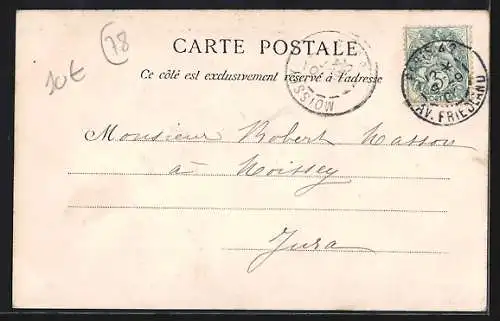 10€ 78
CARTE POSTALE
Ce côté est exclusivement réservé à l'adresse
PARIS 42
AV. FRIEDLAND
MOISSEY
Monsieur Robert Masson
à Moissey
Jura